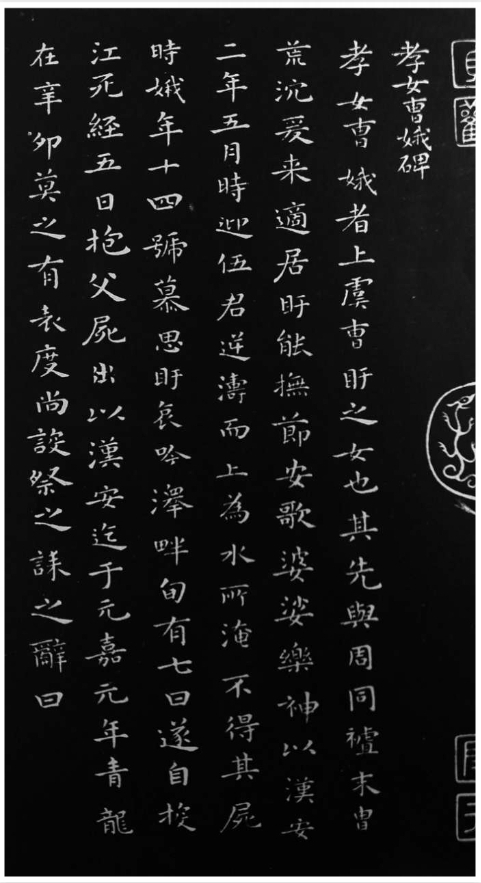 孝女曹娥碑
孝女曹娥者上虞曹盱之女也其先與周同禮末胄
荒沉爰来適居盱能撫節安歌婆娑樂神以漢安
二年五月時迎伍君逆濤而上為水所淹不得其屍
時娥年十四號慕思盱哀吟澤畔旬有七日遂自投
江死經五日抱父屍出以漢安迄于元嘉元年青龍
在辛卯莫之有表度尚設祭之誄之辭曰